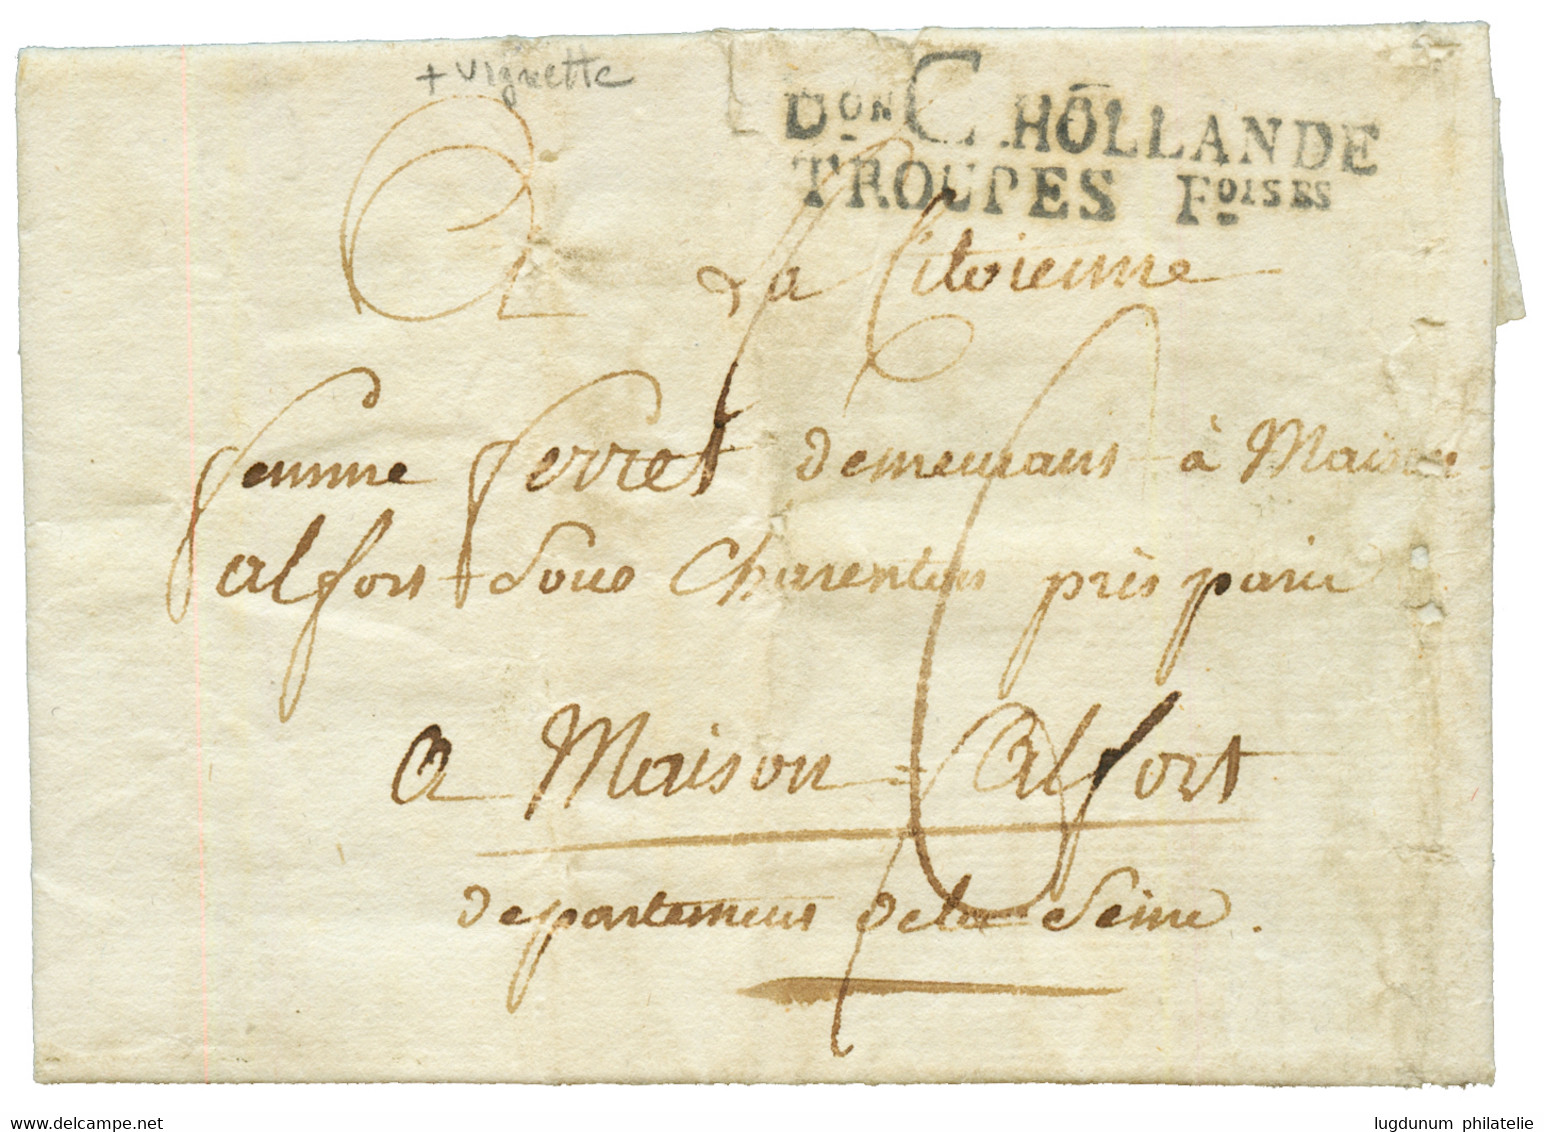 + vignette
Don C. HOLLANDE
TROUPES Foises
A
La Citoienne
femme ferret demeurant à Maison
alfort Sous Charenton près paris
A Maison = Alfort
departement dela Seine.
www.delcampe.net
lugdunum philatelie